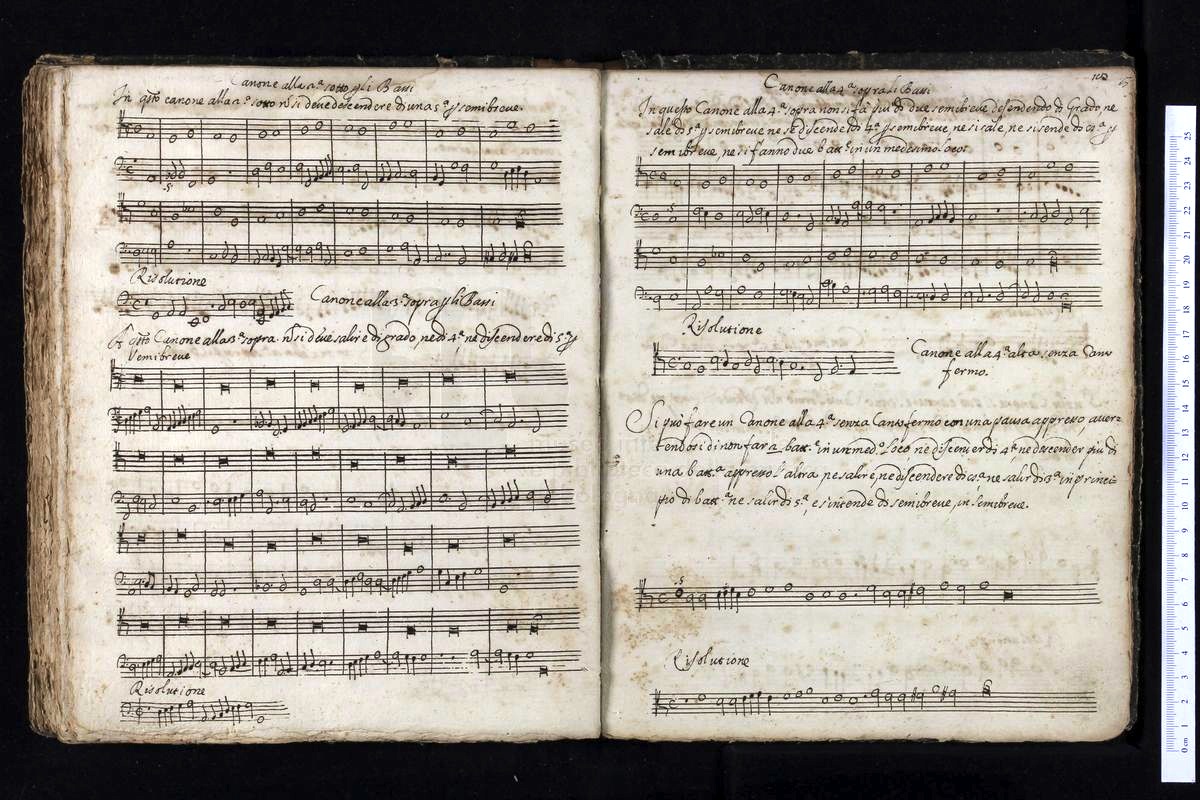 Canone alla 4.ª sotto gli Bassi
In q̃sto canone alla 4.ª sotto nõ si deve descendere di una 5.ª p semibreve.
Risolutione
Canone alla 3.ª sopra gli Bassi
q̃sto Canone alla 3.ª sopra nõ si deve salire di grado, ne di 4.ª, ne discendere di 5.ª p
semibreve
Risolutione
Canone alla 4.ª sopra li Bassi
In questo Canone alla 4.ª sopra non si fa piu di due semibreve descendendo di Grado, ne
sale di 5.ª p semibreve ne se discende di 4.ª p semibreve, ne si sale, ne si sende di p
semibreve, ne si fanno due batt.ᵉ in un medesimo loco.
Risolutione
Canone alla 4.ª alta senza Canto
fermo.
Si può fare un Canone alla 4.ª senza Canto fermo con una pausa appresso, auer-
tendosi di non far batt.ᵉ in un med.º loco ne discender di 4.ª ne descender piu di
una batt.ª appresso l'altra ne salire, ne discendere di ne salir di 3.ª in princi-
pio di batt.ª ne salir di 5.ª, e s'intende di semibreue, in semibreue.
Risolutione